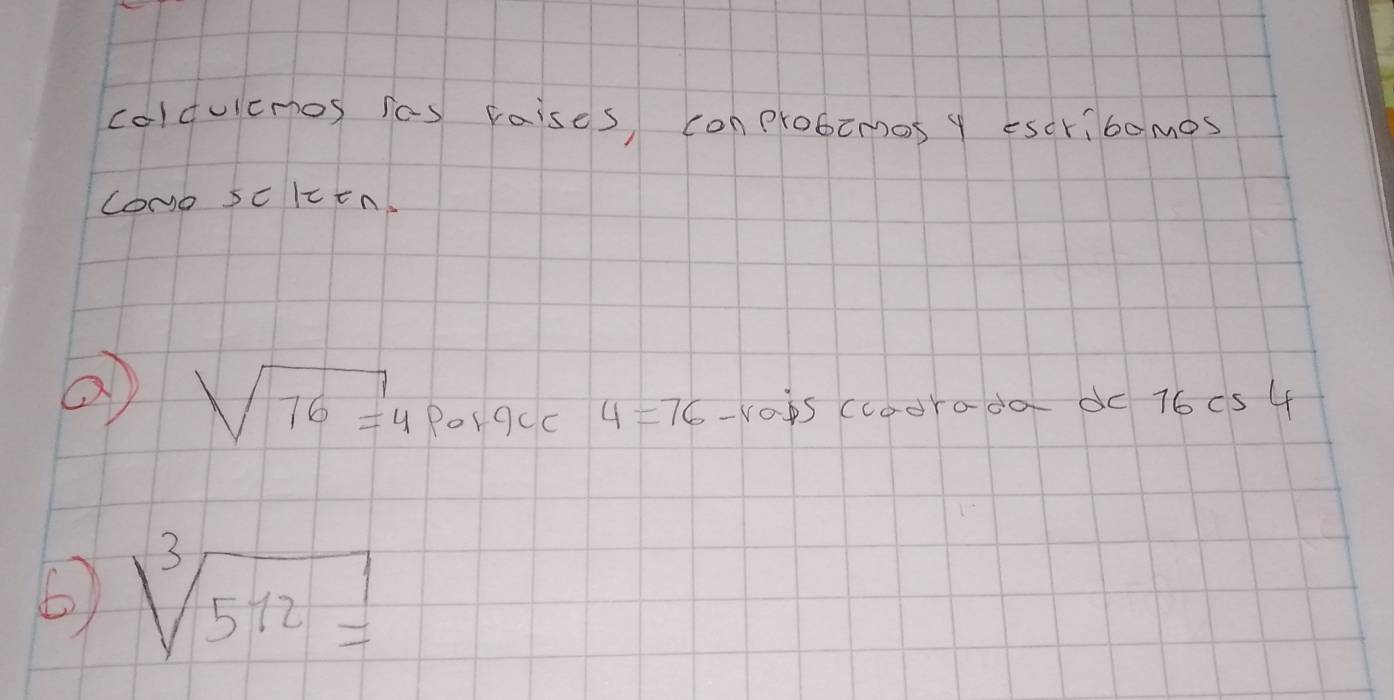 calculemos las raises, conprobemos y escribamos
como se leen.
a) √16 = 4 Porque 4 = 16 - rais cuadrada de 16 es 4
b) ³√512 =